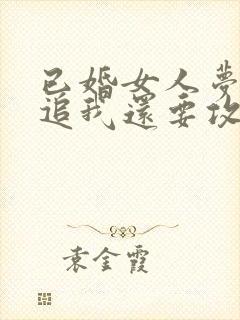 已婚女人夢
追我還要攻
袁金霞